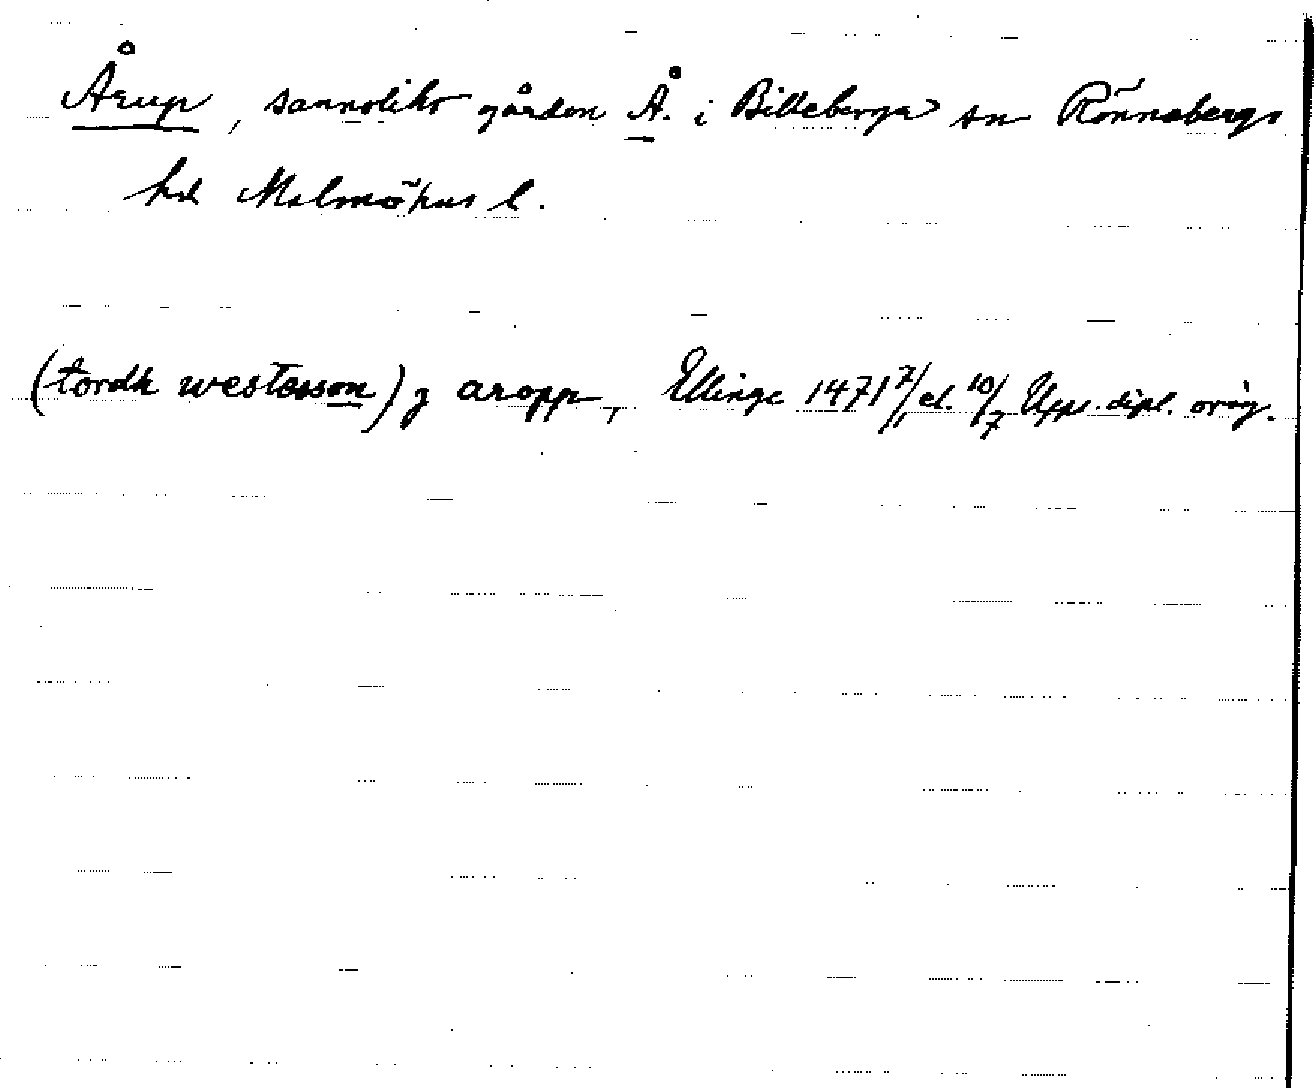 Årup, sannolikt gården Å. i Billeberga sn Rönnebergs
hd Malmöhus l.
(tordh westesson) j aropp, Ellinge 1471 7/1 el. 10/7 Upps. dipl. orig.